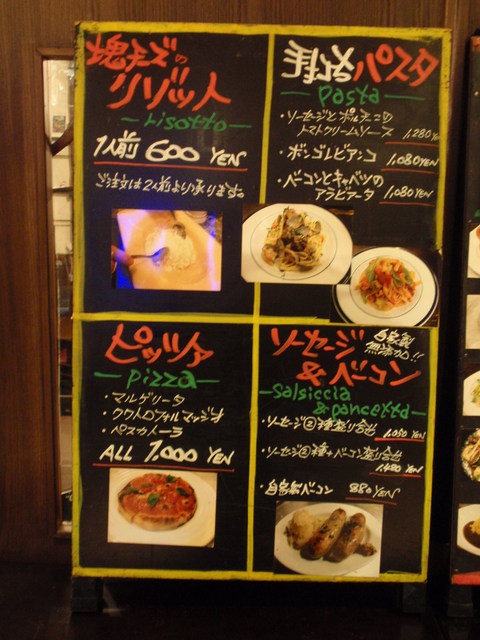 塊チーズの
リゾット
Lisotto
1人前 600 YEN
ご注文は2人前より承ります。
手打ち パスタ
pasta
・ソーセージとポルチーニの
トマトクリームソース 1,280 YEN
・ボンゴレビアンコ 1,080 YEN
・ベーコンとキャベツの
アラビアータ 1,080 YEN
ピッツァ
pizza
・マルゲリータ
・クワトロフォルマッジオ
・ペスカトーラ
ALL 1,000 YEN
ソーセージ 自家製
無添加!!
& ベーコン
Salsiccia
& pancetta
・ソーセージ②種盛り合せ
1,050 YEN
・ソーセージ②種+ベーコン盛り合せ
1,480 YEN
・自家製ベーコン 880 YEN